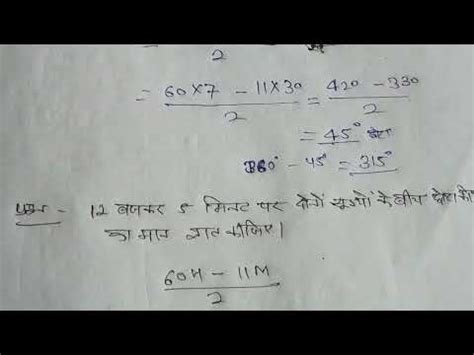 2
= 60×7 - 11×30 / 2 = 420 - 330 / 2
= 45°
360° - 45° = 315°
प्रश्न - 12 बजकर 5 मिनट पर दोनों सूइयों के बीच कोण
का मान ज्ञात कीजिए।
60H - 11M / 2